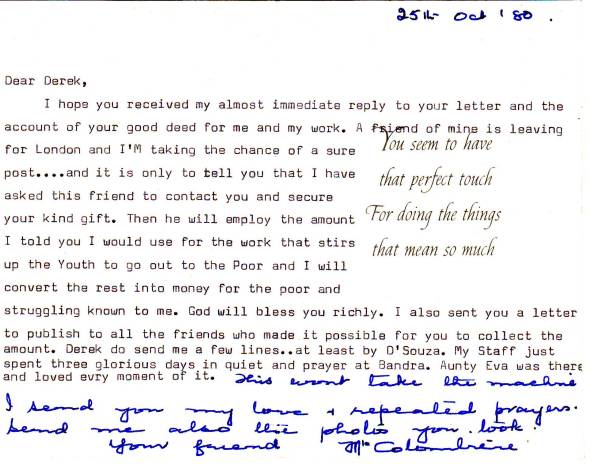 25th Oct '80.
Dear Derek,
I hope you received my almost immediate reply to your letter and the
account of your good deed for me and my work. A friend of mine is leaving
for London and I'M taking the chance of a sure
post....and it is only to tell you that I have
asked this friend to contact you and secure
your kind gift. Then he will employ the amount
I told you I would use for the work that stirs
up the Youth to go out to the Poor and I will
convert the rest into money for the poor and
You seem to have
that perfect touch
For doing the things
that mean so much
struggling known to me. God will bless you richly. I also sent you a letter
to publish to all the friends who made it possible for you to collect the
amount. Derek do send me a few lines..at least by D'Souza. My Staff just
spent three glorious days in quiet and prayer at Bandra. Aunty Eva was there
and loved evry moment of it. This wont take the machine
I send you my love + repeated prayers.
Send me also the photos you took.
Your friend Colombière